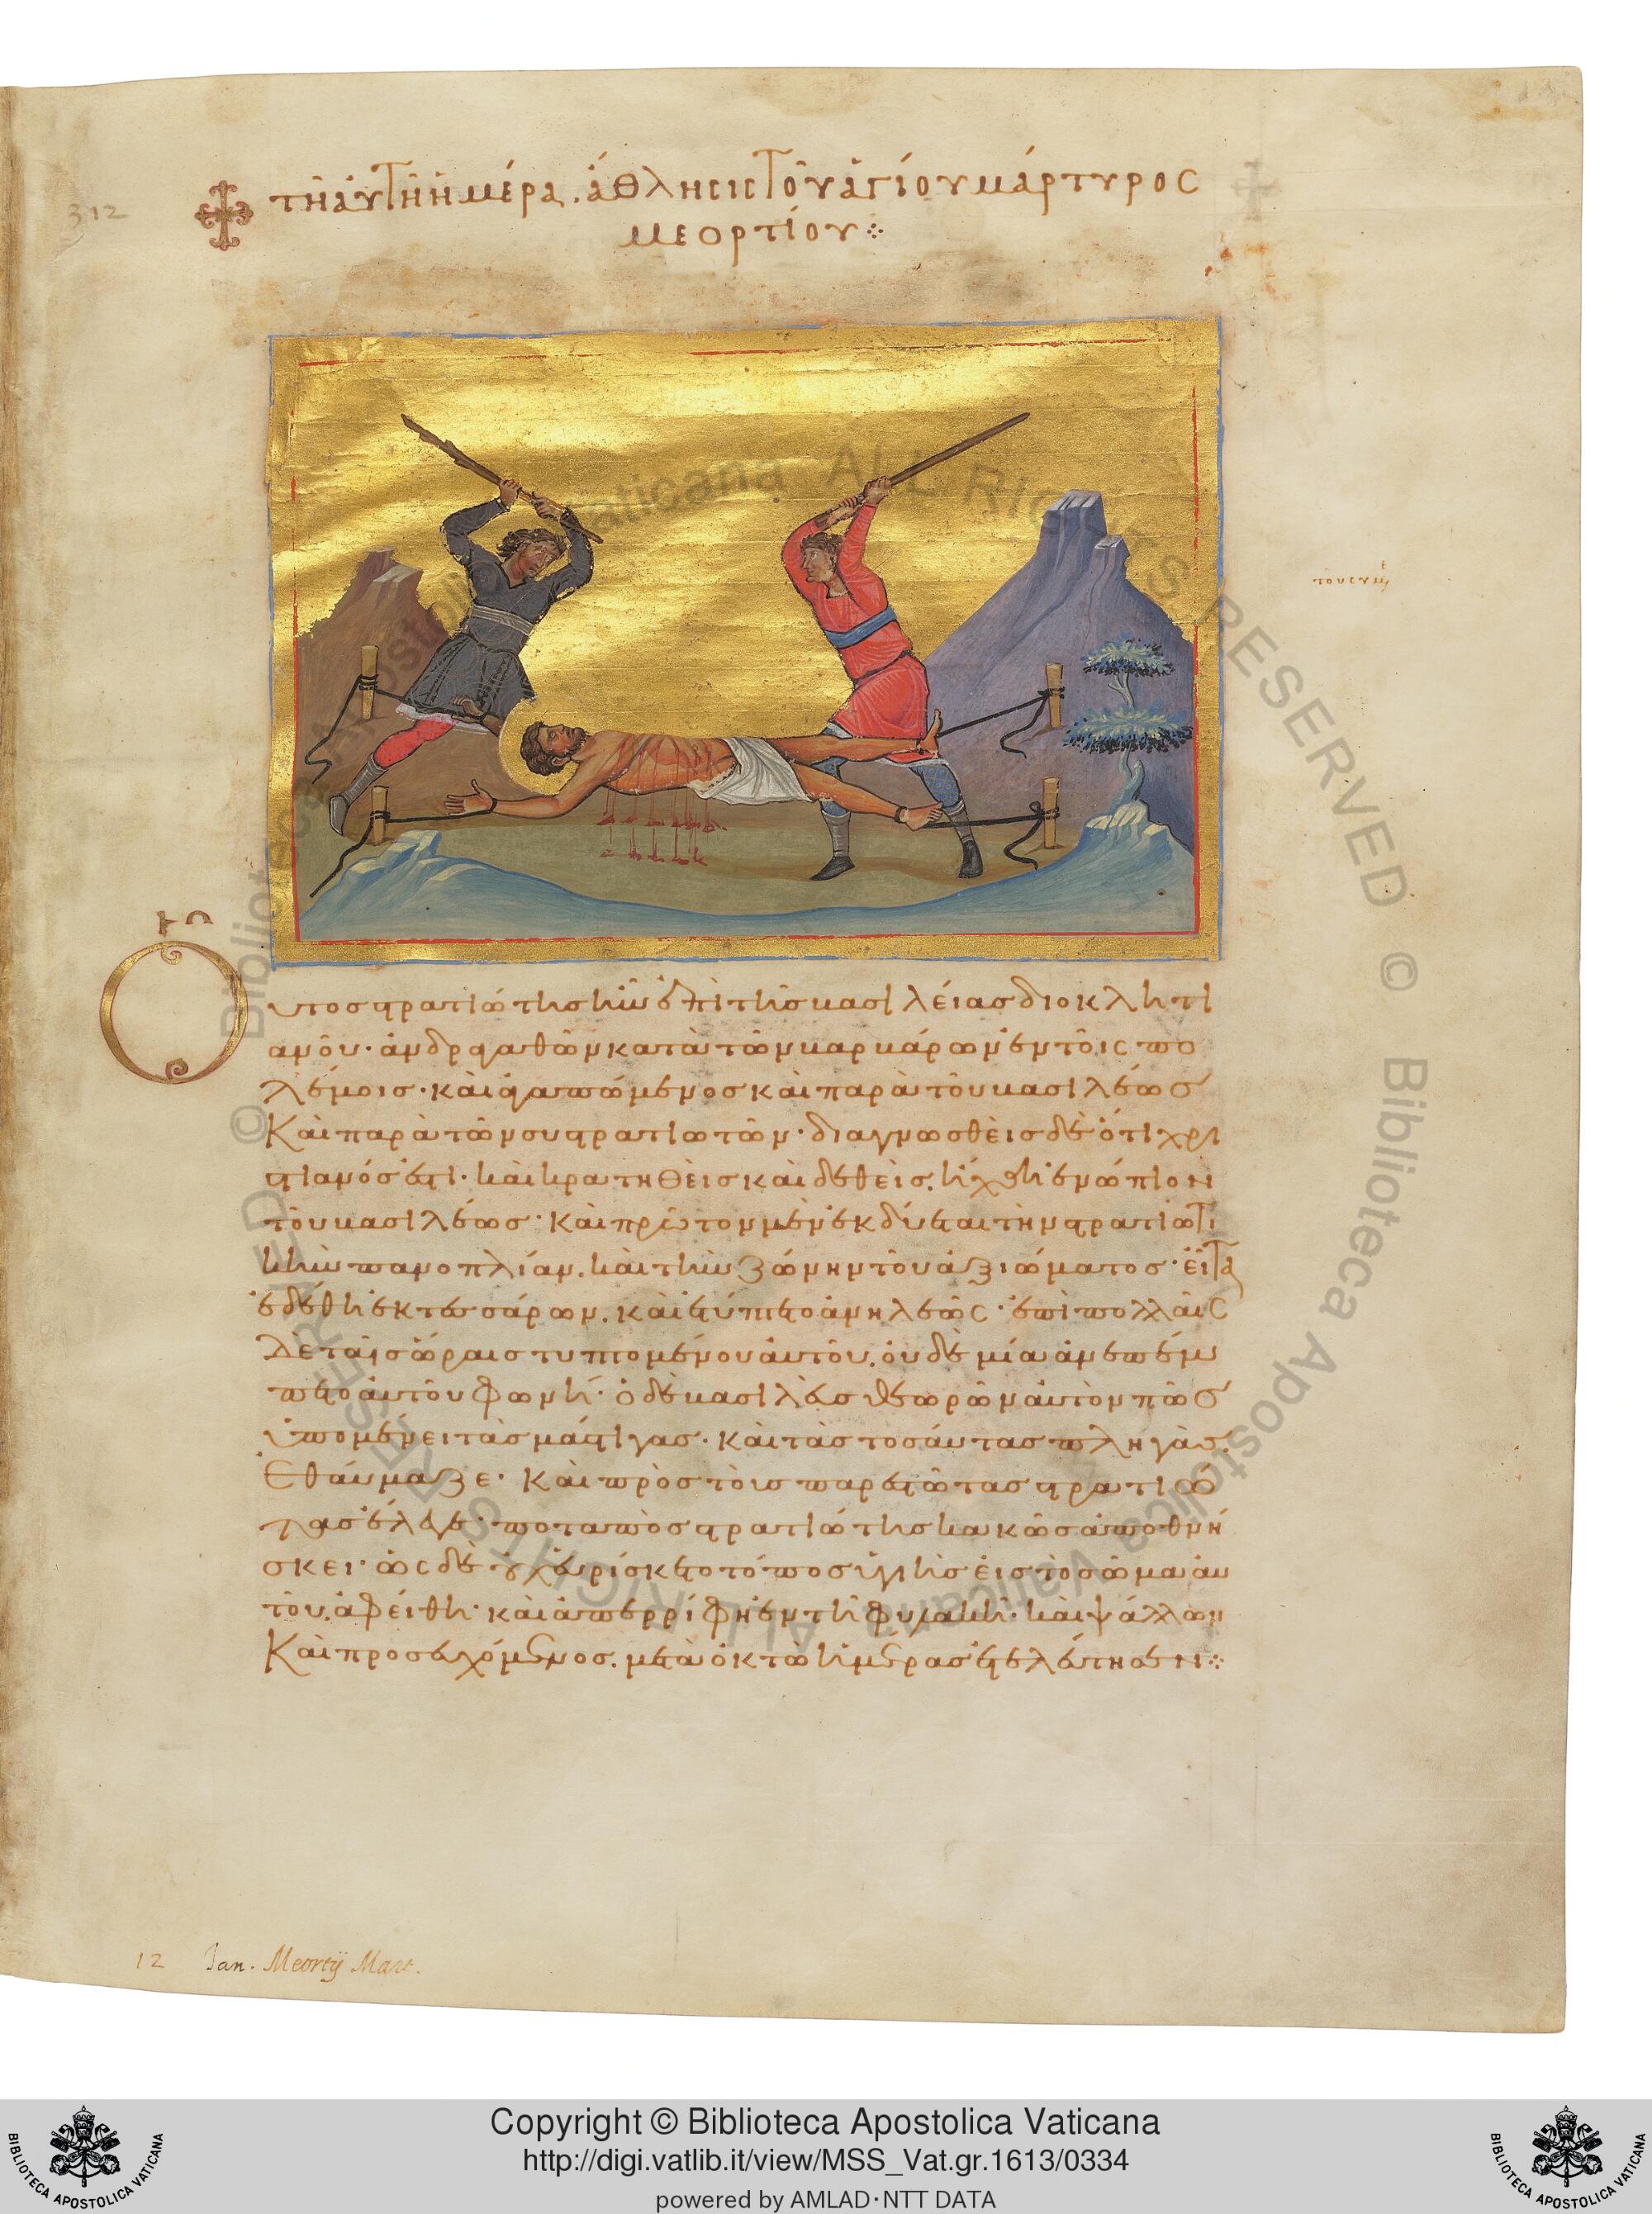 312
τῆ αὐτῆ ἡμέρα. ἄθλησις τοῦ ἁγίου μάρτυρος
μεορτίου
Οὗτος στρατιώτης ἦν ἐπὶ τῆς βασιλείας διοκλητι
ανοῦ· ἀνδραγαθῶν κατὰ τῶν βαρβάρων ἐν τοῖς πο
λέμοις· καὶ ἀγαπώμενος καὶ παρὰ τοῦ βασιλέως
Καὶ παρὰ τῶν συστρατιωτῶν· διαγνωσθεὶς δὲ ὅτι χρι
στιανός ἐστι· καὶ κρατηθεὶς καὶ δεθεὶς. ἤχθη ἐνώπιον
τοῦ βασιλέως· καὶ πρῶτον μὲν ἐκδύεται τὴν στρατιωτι
κὴν πανοπλίαν. καὶ τὴν ζώνην τοῦ ἀξιώματος· εἶτα
ἐδέθη ἐκ τεσσάρων. καὶ ἐτύπτετο ἀνηλεῶς· ἐπὶ πολλαῖς
δὲ ταῖς ὥραις τυπτομένου αὐτοῦ. οὐδὲ μία ἀνεπέμ
πετο αὐτοῦ φωνή· ὁ δὲ βασιλεὺς θεωρῶν αὐτὸν πῶς
ὑπομένει τὰς μάστιγας· καὶ τὰς τοσαύτας πληγὰς.
Ἐθαύμαζε· Καὶ πρὸς τοὺς παρεστῶτας στρατιώ
τας ἔλεγε· ποταπὸς στρατιώτης κακῶς ἀποθνή
σκει· ὡς δὲ οὐχ εὑρίσκετο τόπος ὑγιὴς εἰς τὸ σῶμα αὐ
τοῦ. ἀφείθη· καὶ ἀπερρίφη ἐν τῆ φυλακῆ· καὶ ψάλλων
Καὶ προσευχόμενος. μετὰ ὀκτὼ ἡμέρας ἐτελεύτησεν
12 Jan. Meortij Mart.
Copyright © Biblioteca Apostolica Vaticana
http://digi.vatlib.it/view/MSS_Vat.gr.1613/0334
powered by AMLAD·NTT DATA
BIBLIOTECA APOSTOLICA VATICANA
BIBLIOTECA APOSTOLICA VATICANA
© Biblioteca Apostolica Vaticana ALL RIGHTS RESERVED © Biblioteca Apostolica Vaticana ALL RIGHTS RESERVED